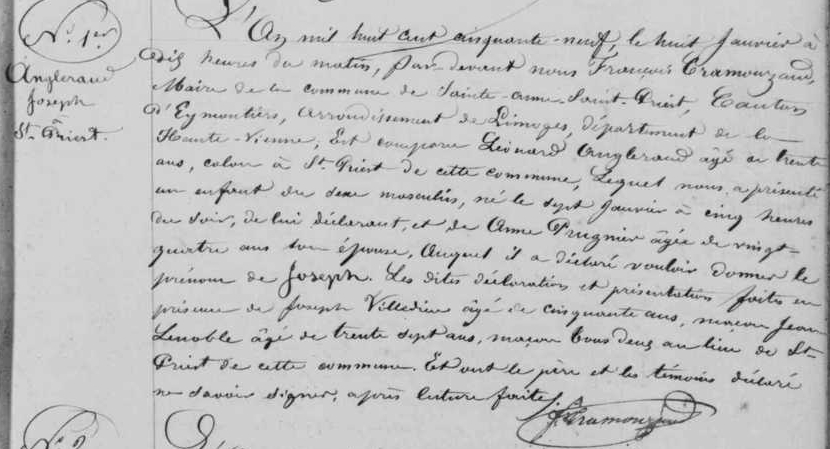 N°. 1er
Angleraud
Joseph
à
St. Priest.
L'An mil huit cent cinquante-neuf, le huit Janvier à
dix heures du matin, par-devant nous François Tramouzaud,
Maire de la commune de Sainte-Anne-Saint-Priest, Canton
d'Eymoutiers, arrondissement de Limoges, département de la
Haute-Vienne, Est comparu Léonard Angleraud âgé de trente
ans, colon à St. Priest de cette commune, Lequel nous a présenté
un enfant du sexe masculin, né le sept Janvier à cinq heures
du soir, de lui déclarant, et de Anne Prugnier âgée de vingt-
quatre ans son épouse, Auquel il a déclaré vouloir donner le
prénom de Joseph. Les dites déclaration et présentation faites en
présence de Joseph Villedieu âgé de cinquante ans, maçon Jean
Lenoble âgé de trente sept ans, maçon tous deux au lieu de St-
Priest de cette commune. Et ont le père et les témoins déclaré
ne savoir signer, après lecture faite.
Tramouzaud
N°. 2
L'